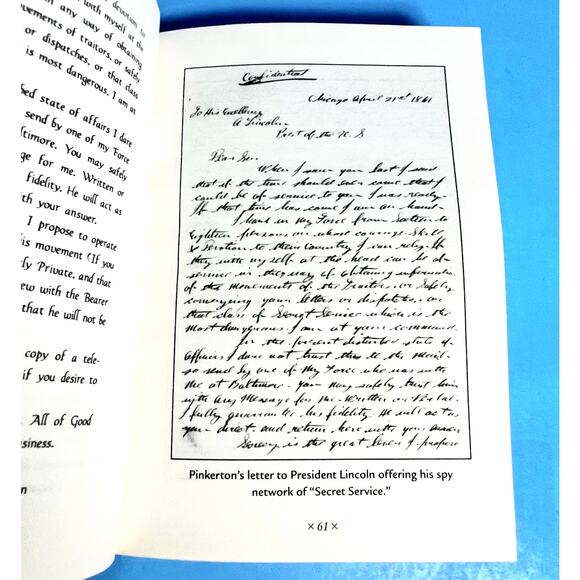 devotion to
with myself at the
in any way of obtaining
vements of traitors, or safely
or dispatches, or that class
is most dangerous. I am at
bed state of affairs I dare
send by one of my Force
ltimore. You may safely
ge for me. Written or
Fidelity. He will act as
th your answer.
I propose to operate
is movement (If you
ly Private, and that
ew with the Bearer
that he will not be
copy of a tele-
if you desire to
All of Good
siness.
n
Confidential
Chicago April 21st 1861
To His Excellency
A Lincoln
Prest of the U.S
Dear Sir
When I saw you last I said
that if the time should ever come that I
could be of service to you I was ready—
If that time has come I am on hand—
I have in my Force from Sixteen to
Eighteen persons on whose courage, Skill
& Devotion to their Country I can rely. If
they with myself at the head can be of
service in the way of obtaining information
of the movements of the Traitors, or Safely
conveying your letters or dispatches, or
that class of Secret Service which is the
most dangerous I am at your command.
In the present disturbed state of
Affairs I dare not trust this to the mail—
so send by one of my Force who was with
me at Baltimore— You may safely trust him
with any Message for me— Written or Verbal—
I fully guarantee his fidelity. He will act as
you direct and return here with your answer
Secrecy is the great lever I propose
Pinkerton's letter to President Lincoln offering his spy
network of "Secret Service."
×61×